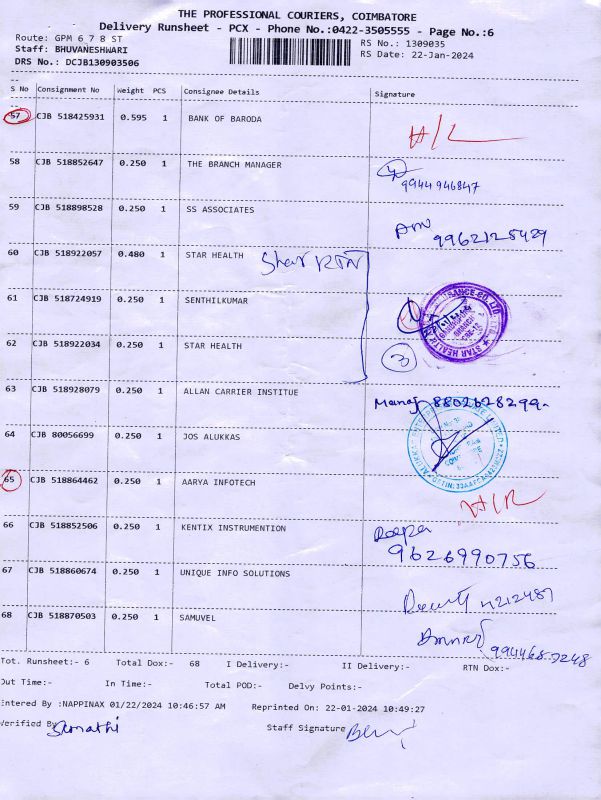 THE PROFESSIONAL COURIERS, COIMBATORE
Delivery Runsheet - PCX - Phone No.:0422-3505555 - Page No.:6
Route: GPM 6 7 8 ST
RS No.: 1309035
Staff: BHUVANESHWARI
RS Date: 22-Jan-2024
DRS No.: DCJB130903506
S No Consignment No Weight PCS Consignee Details Signature
57 CJB 518425931 0.595 1 BANK OF BARODA
58 CJB 518852647 0.250 1 THE BRANCH MANAGER
9944946847
59 CJB 518898528 0.250 1 SS ASSOCIATES
9962128429
60 CJB 518922057 0.480 1 STAR HEALTH
61 CJB 518724919 0.250 1 SENTHILKUMAR
62 CJB 518922034 0.250 1 STAR HEALTH
3
63 CJB 518928079 0.250 1 ALLAN CARRIER INSTITUE
Manoj 8802628299-
64 CJB 80056699 0.250 1 JOS ALUKKAS
65 CJB 518864462 0.250 1 AARYA INFOTECH
66 CJB 518852506 0.250 1 KENTIX INSTRUMENTION
9626990756
67 CJB 518860674 0.250 1 UNIQUE INFO SOLUTIONS
68 CJB 518870503 0.250 1 SAMUVEL
Tot. Runsheet:- 6 Total Dox:- 68 I Delivery:- II Delivery:- RTN Dox:-
Out Time:- In Time:- Total POD:- Delvy Points:-
Entered By :NAPPINAX 01/22/2024 10:46:57 AM Reprinted On: 22-01-2024 10:49:27
Verified By Sumathi Staff Signature